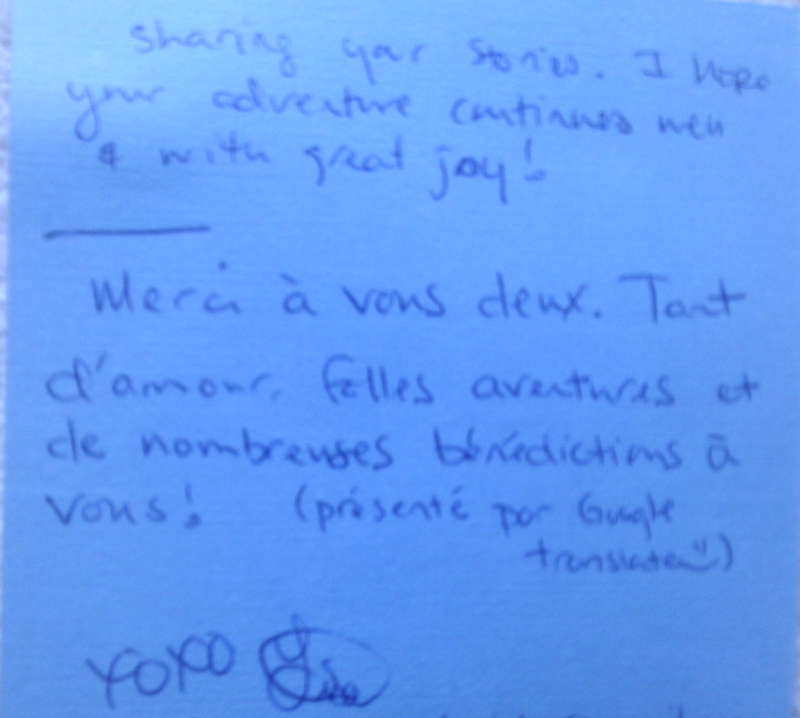 sharing your stories. I hope
your adventure continues well
& with great joy!
Merci à vous deux. Tant
d'amour, folles aventures et
de nombreuses bénédictions à
vous! (présenté par Google
translate)
XOXO